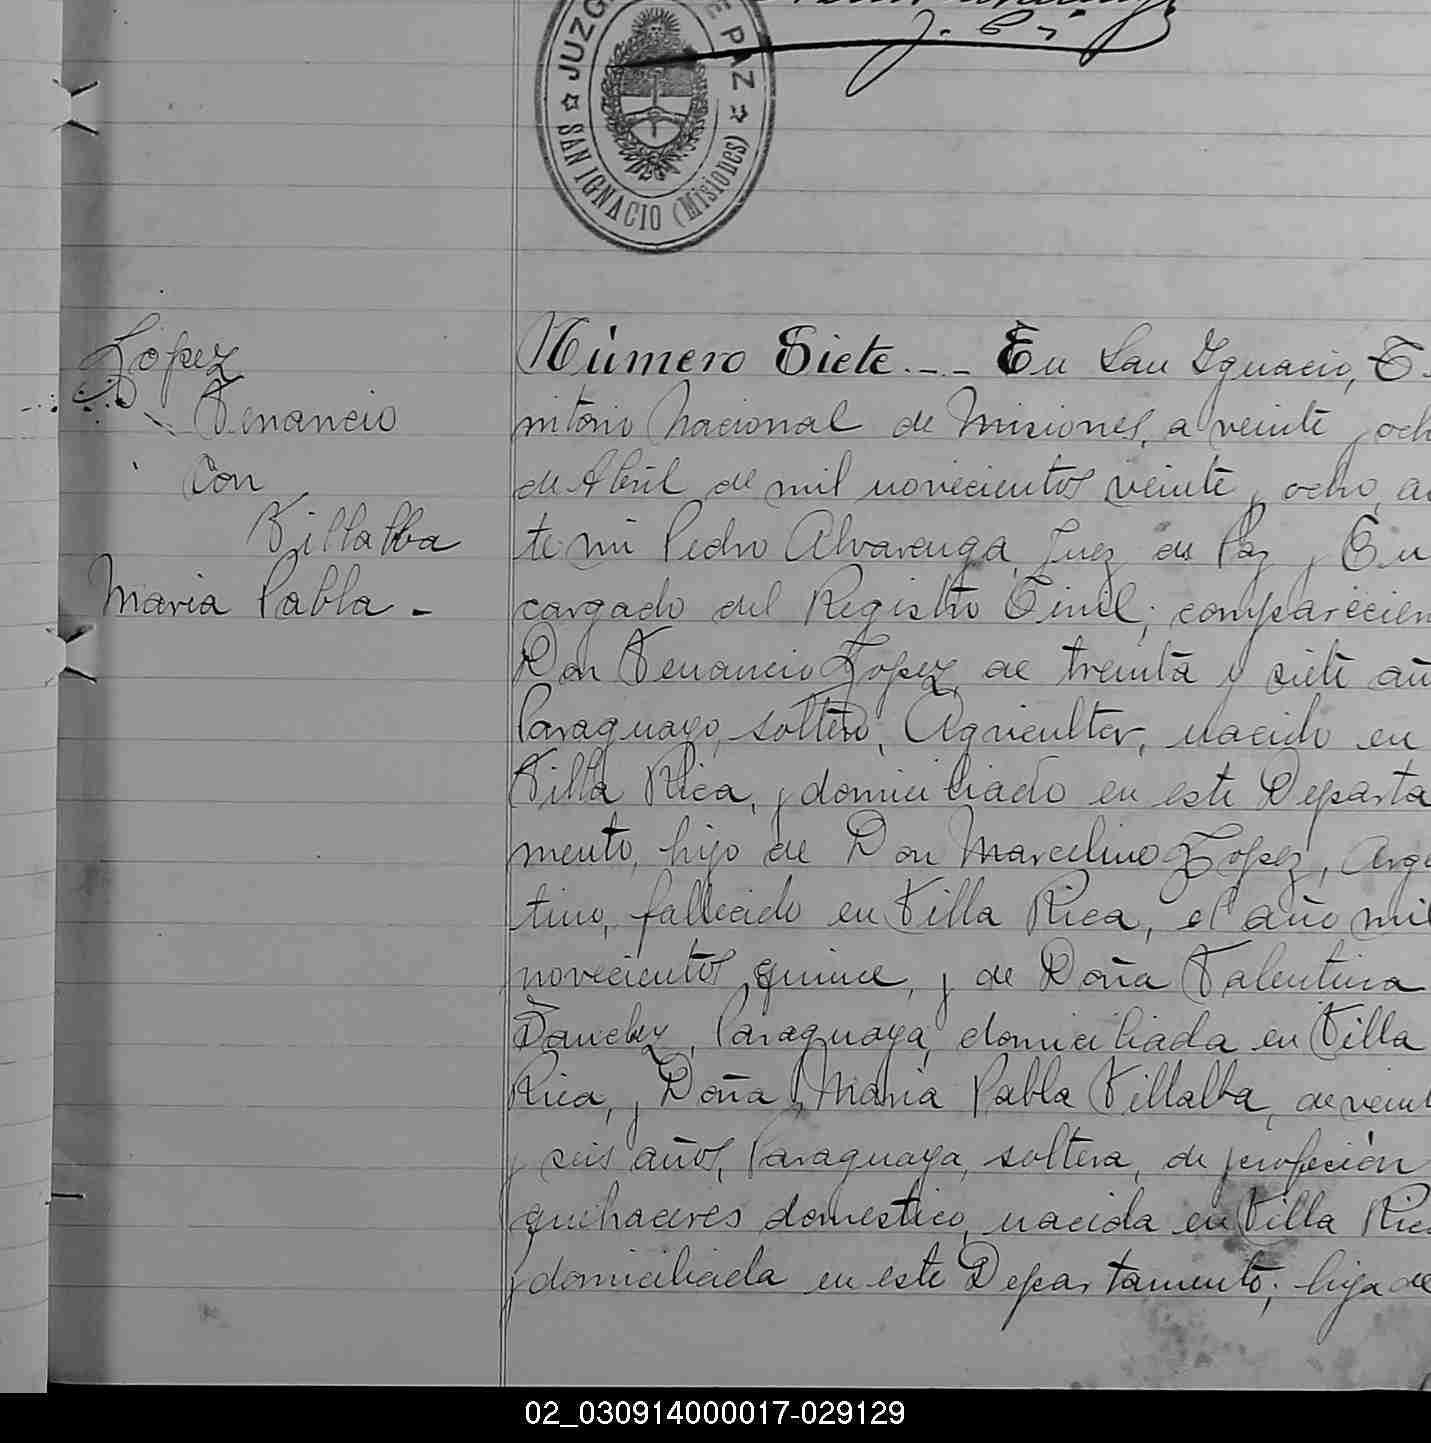 JUZGADO DE PAZ
SAN IGNACIO (Misiones)
J. P.
López
Venancio
con
Villalba
Maria Pabla -
Número Siete.-- En San Ygnacio, Te-
rritorio Nacional de Misiones, a veinte y och
de Abril de mil novecientos veinte y ocho, an
te mi Pedro Alvarenga, Juez de Paz y En
cargado del Registro Civil; comparecien
Don Venancio Lopez, de treinta y siete añ
Paraguayo, soltero, Agricultor, nacido en
Villa Rica, y domiciliado en este Departa
mento, hijo de Don Marcelino Lopez, Arge
tino, fallecido en Villa Rica, el año mil
novecientos quince, y de Doña Valentina
Sanchez, Paraguaya, domiciliada en Villa
Rica, y Doña Maria Pabla Villalba, de veint
y seis años, Paraguaya, soltera, de profeción
quehaceres domestico, nacida en Villa Rica
y domiciliada en este Departamento; hija de
02_030914000017-029129